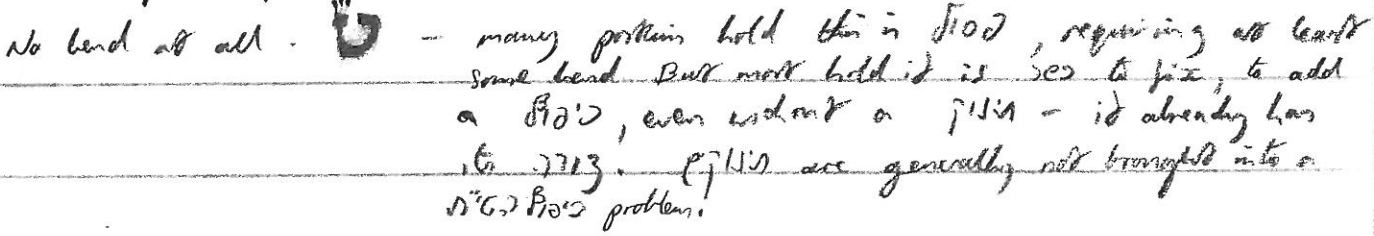 No bend at all. ט – many poskim hold this is פסול, requiring at least
some bend. But most hold it is כשר to fix, to add
a כיפוף, even without a תינוק – it already has
its צורה. תינוקים are generally not brought into a
כיפוף הטי״ת problem.